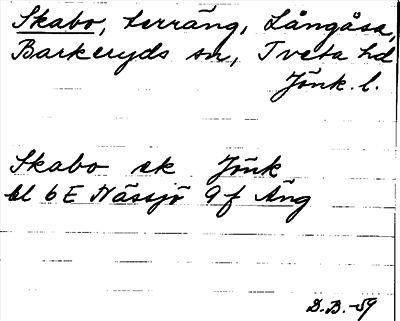 Skabo, terräng, Långåsa,
Barkeryds sn, Tveta hd
Jönk. l.
Skabo ek Jönk
bl 6E Nässjö 9f Äng
D.B. -59